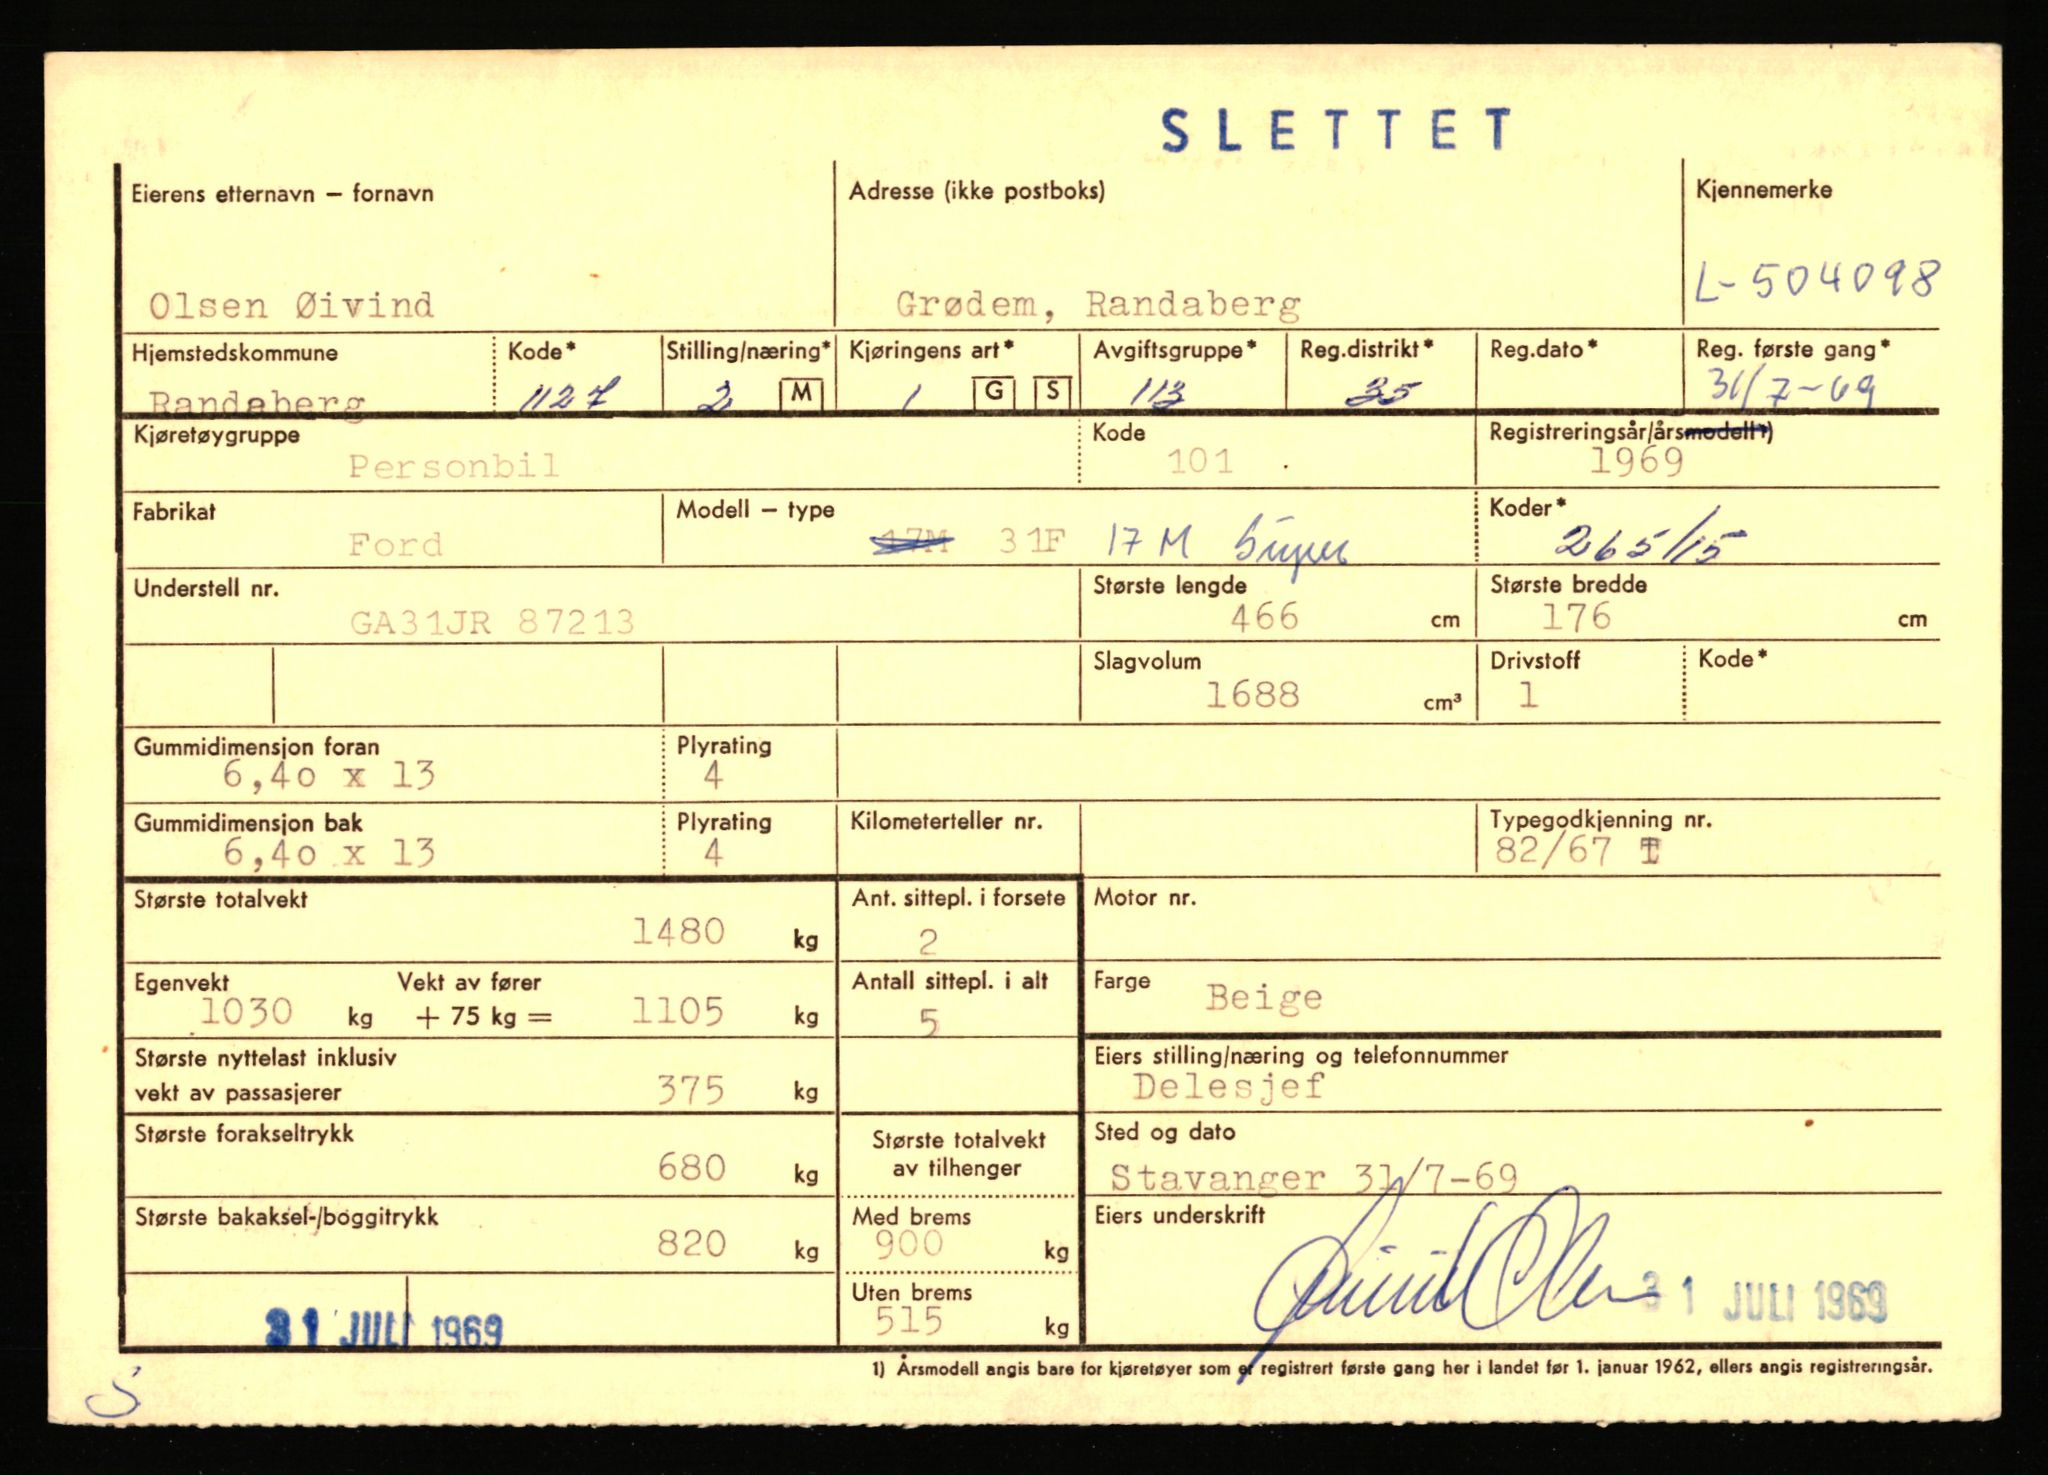 SLETTET
Eierens etternavn – fornavn
Adresse (ikke postboks)
Kjennemerke
Olsen Øivind
Grødem, Randaberg
L-504098
Hjemstedskommune
Kode*
Stilling/næring*
Kjøringens art*
Avgiftsgruppe*
Reg.distrikt*
Reg.dato*
Reg. første gang*
Randaberg
1127
2 M
1 G S
113
35
31/7-69
Kjøretøygruppe
Kode
Registreringsår/årsmodell1)
Personbil
101
1969
Fabrikat
Modell – type
Koder*
Ford
17M 31F 17 M Super
265/15
Understell nr.
Største lengde
Største bredde
GA31JR 87213
466 cm
176 cm
Slagvolum
Drivstoff
Kode*
1688 cm³
1
Gummidimensjon foran
Plyrating
6,40 x 13
4
Gummidimensjon bak
Plyrating
Kilometerteller nr.
Typegodkjenning nr.
6,40 x 13
4
82/67 T
Største totalvekt
Ant. sittepl. i forsete
Motor nr.
1480 kg
2
Egenvekt
Vekt av fører
Antall sittepl. i alt
Farge
1030 kg + 75 kg = 1105 kg
5
Beige
Største nyttelast inklusiv
vekt av passasjerer
375 kg
Eiers stilling/næring og telefonnummer
Delesjef
Største forakseltrykk
680 kg
Største totalvekt
av tilhenger
Sted og dato
Stavanger 31/7-69
Største bakaksel-/boggitrykk
820 kg
Med brems
900 kg
Eiers underskrift
Øivind Olsen
31 JULI 1969
Uten brems
515 kg
31 JULI 1969
1) Årsmodell angis bare for kjøretøyer som er registrert første gang her i landet før 1. januar 1962, ellers angis registreringsår.